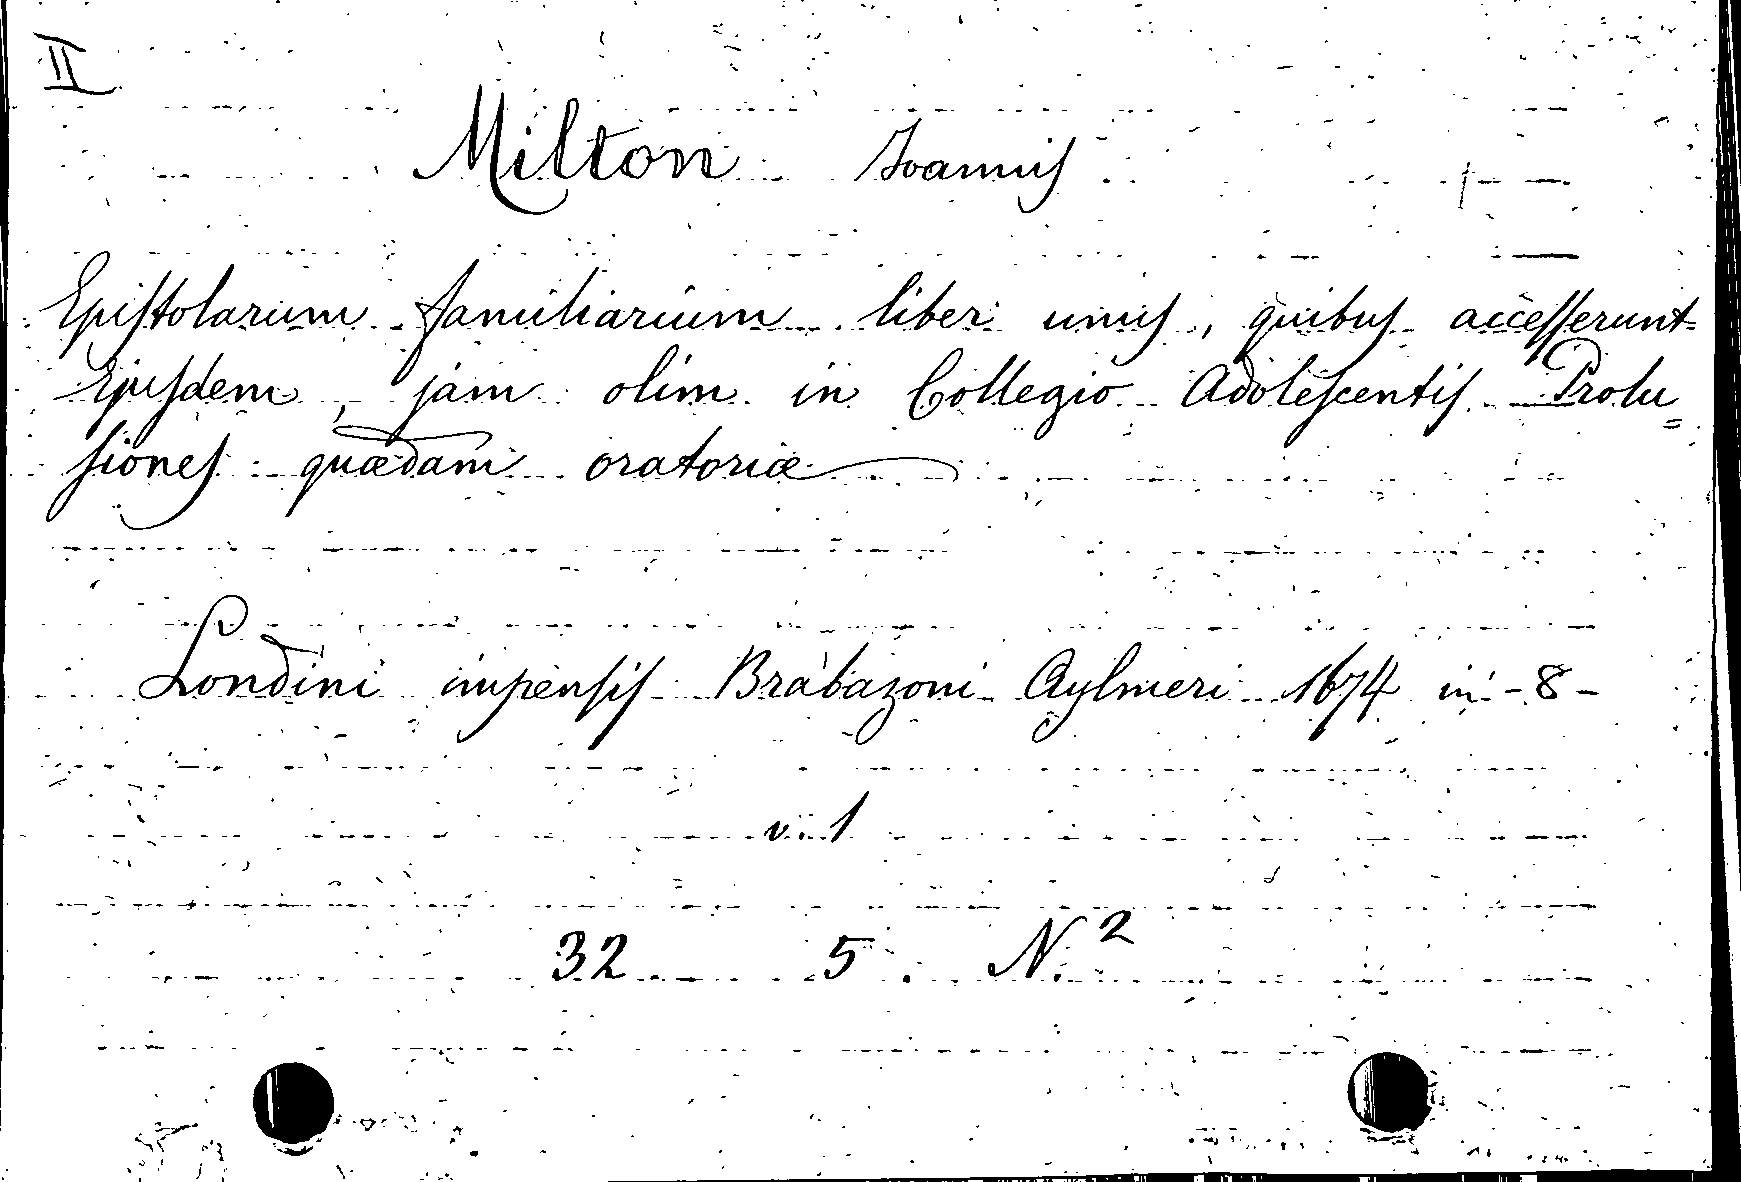 II
Milton Joannis
Epistolarum familiarium liber unus, quibus accesserunt
Ejusdem, jam olim in Collegio Adolescentis Prolu=
siones quædam oratoriæ
Londini impensis Brabazoni Aylmeri 1674 in-8-
v. 1
32 5. N. 2